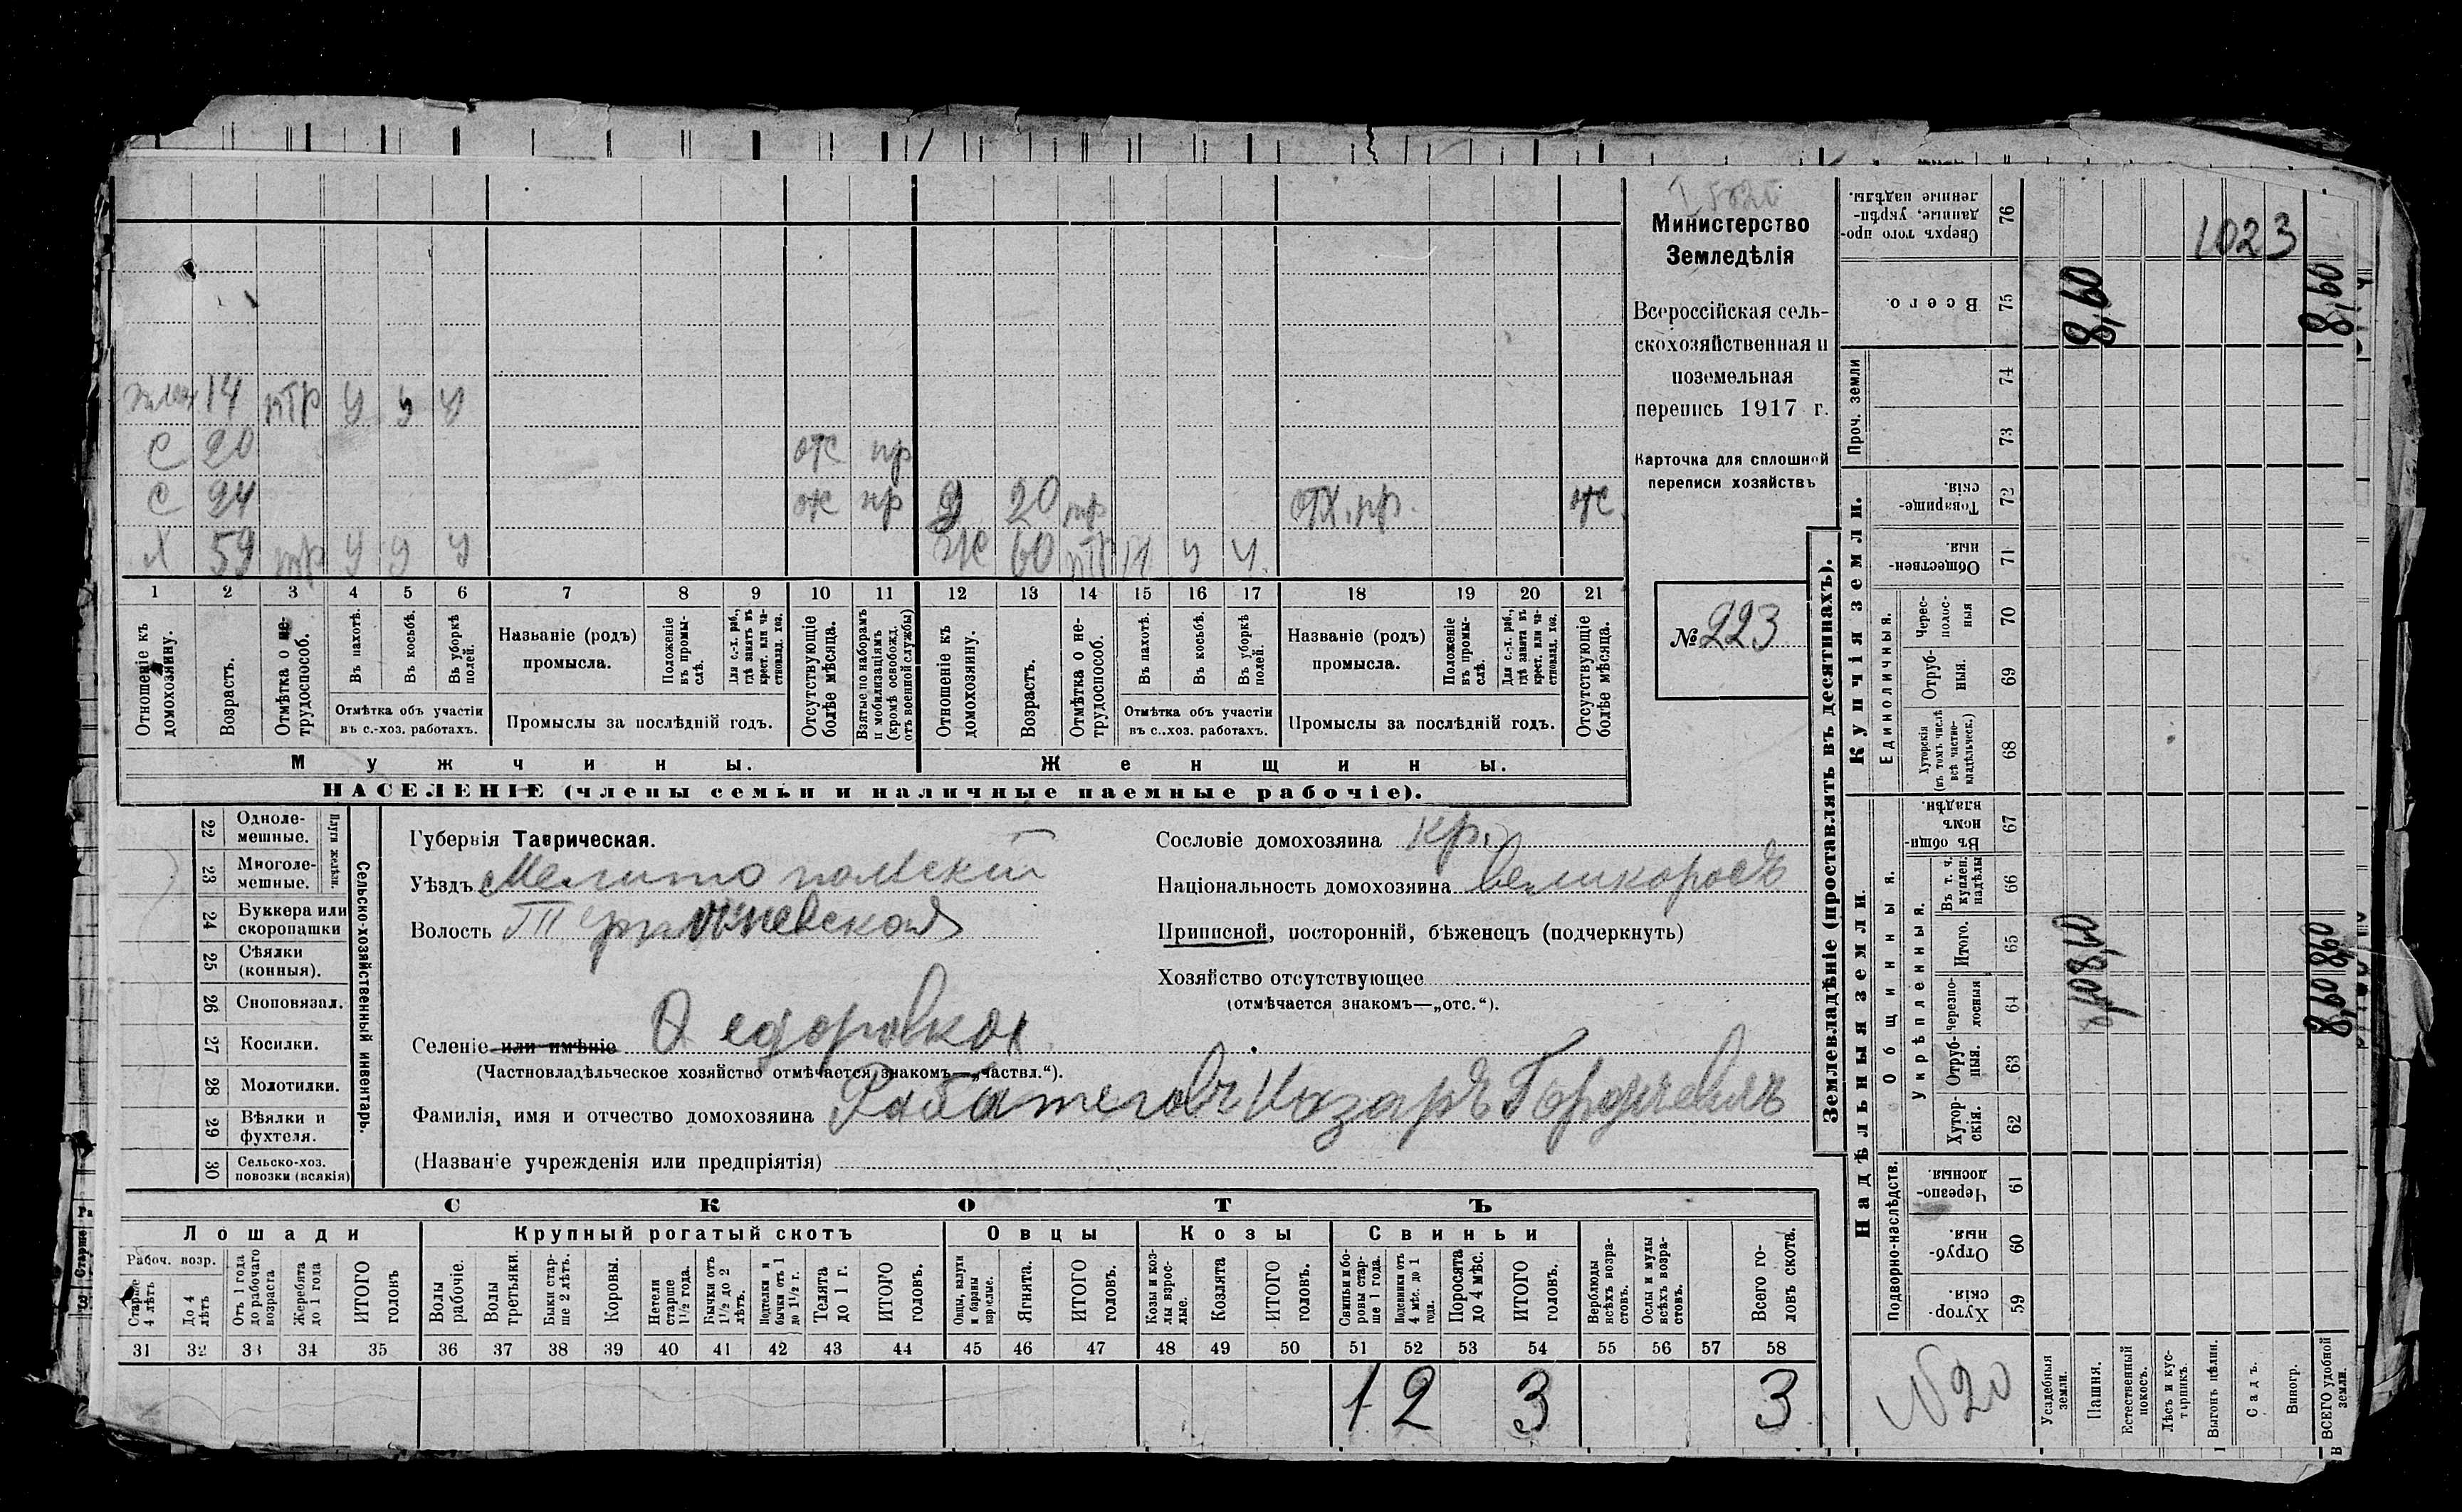 Министерство
Земледѣлія
Всероссійская сель-
скохозяйственная и
поземельная
перепись 1917 г.
Карточка для сплошной
переписи хозяйствъ
№ 223
14 птр у у у
С 20 отс пр
С 24 отс пр 20 отх. пр. отс
Х 59 у у у Ж 60 у у
1 2 3 4 5 6 7 8 9 10 11 12 13 14 15 16 17 18 19 20 21
Отношеніе къ домохозяину.
Возрастъ.
Отмѣтка о не-трудоспособ.
Въ пахотѣ.
Въ косьбѣ.
Въ уборкѣ полей.
Отмѣтка объ участіи
въ с.-хоз. работахъ.
Названіе (родъ)
промысла.
Положеніе въ промы-слѣ.
Для с.-х. раб., гдѣ занятъ въ крест. или ча-стновлад. хоз.
Промыслы за послѣдній годъ.
Отсутствующіе болѣе мѣсяца.
Взятые по наборамъ и мобилизаціямъ (кромѣ освобожд. отъ военной службы)
Отношеніе къ домохозяину.
Возрастъ.
Отмѣтка о не-трудоспособ.
Въ пахотѣ.
Въ косьбѣ.
Въ уборкѣ полей.
Отмѣтка объ участіи
въ с.-хоз. работахъ.
Названіе (родъ)
промысла.
Положеніе въ промы-слѣ.
Для с.-х. раб., гдѣ занята въ крест. или ча-стновлад. хоз.
Промыслы за послѣдній годъ.
Отсутствующіе болѣе мѣсяца.
Мужчины. Женщины.
НАСЕЛЕНІЕ (члены семьи и наличные наемные рабочіе).
22 Одноле-мешные.
Плуги желѣзн.
23 Многоле-мешные.
24 Буккера или скоропашки
25 Сѣялки (конныя).
26 Сноповязал.
27 Косилки.
28 Молотилки.
29 Вѣялки и фухтеля.
30 Сельско-хоз. повозки (всякія)
Сельско-хозяйственный инвентарь.
Губернія Таврическая.
Уѣздъ Мелитопольскій
Волость
Селеніе или имѣніе Ѳедоровка
(Частновладѣльческое хозяйство отмѣчается знакомъ—„частвл.“).
Фамилія, имя и отчество домохозяина Назаръ
(Названіе учрежденія или предпріятія)
Сословіе домохозяина кр.
Національность домохозяина великоросъ
Приписной, посторонній, бѣженецъ (подчеркнуть)
Хозяйство отсутствующее
(отмѣчается знакомъ—„отс.“).
СКОТЪ
Лошади Крупный рогатый скотъ Овцы Козы Свиньи
Рабоч. возр.
Старше 4 лѣтъ
До 4 лѣтъ
Отъ 1 года до рабочаго возраста
Жеребята до 1 года
ИТОГО головъ
Волы рабочіе.
Волы третьяки.
Быки стар-ше 2 лѣтъ.
Коровы.
Нетели старше 1½ года.
Бычки отъ 1½ до 2 лѣтъ.
Подтелки и бычки отъ 1 до 1½ г.
Телята до 1 г.
ИТОГО головъ.
Овцы, валухи и бараны взрослые.
Ягнята.
ИТОГО головъ.
Козы и коз-лы взрос-лые.
Козлята
ИТОГО головъ.
Свиньи и бо-ровы стар-ше 1 года.
Подсвинки отъ 4 мѣс. до 1 года.
Поросята до 4 мѣс.
ИТОГО головъ.
Верблюды всѣхъ возра-стовъ.
Ослы и мулы всѣхъ возра-стовъ.
Всего го-ловъ скота.
31 32 33 34 35 36 37 38 39 40 41 42 43 44 45 46 47 48 49 50 51 52 53 54 55 56 57 58
1 2 3 3
Землевладѣніе (проставлять въ десятинахъ).
Надѣльныя земли. Купчія земли. Проч. земли
Подворно-наслѣдств. Общинныя. Единоличныя.
Укрѣпленныя.
Хутор-скія. 59
Отруб-ныя. 60
Черезпо-лосныя. 61
Хутор-скія. 62
Отруб-ныя. 63
Черезпо-лосныя 64
Итого. 65
Въ т. ч. куплен. надѣлы 66
Въ общин-номъ владѣн. 67
Хуторскія (въ томъ числѣ всѣ частно-владѣльческ.) 68
Отруб-ныя. 69
Черес-полос-ныя 70
Обществен-ныя. 71
Товарище-скія. 72
73
74
Всего. 75
Сверхъ того про-данные, укрѣп-ленные надѣлы. 76
Усадебныя земли.
Пашня.
Естественный покосъ.
Лѣсъ и кус-тарникъ.
Выгонъ цѣлин.
Садъ.
Виногр.
ВСЕГО удобной земли.
8,60
8,60
8,60 8,60
1023
№20